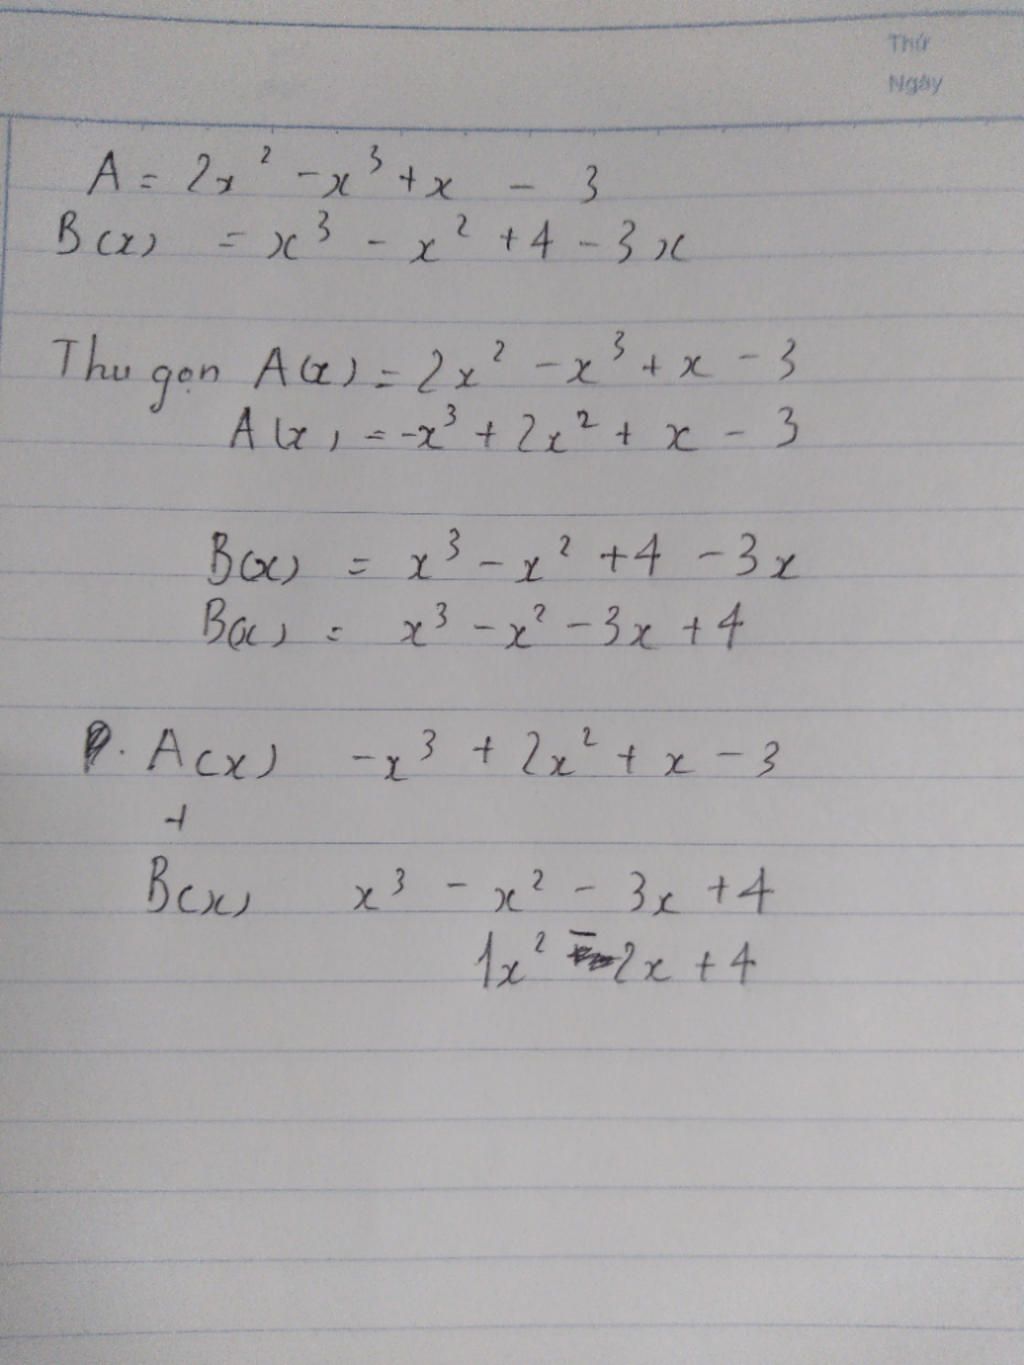 Thứ
Ngày
A = 2x² - x³ + x - 3
B(x) = x³ - x² + 4 - 3x
Thu gọn A(x) = 2x² - x³ + x - 3
A(x) = -x³ + 2x² + x - 3
B(x) = x³ - x² + 4 - 3x
B(x) = x³ - x² - 3x + 4
P. A(x) -x³ + 2x² + x - 3
+
B(x) x³ - x² - 3x + 4
1x² - 2x + 4